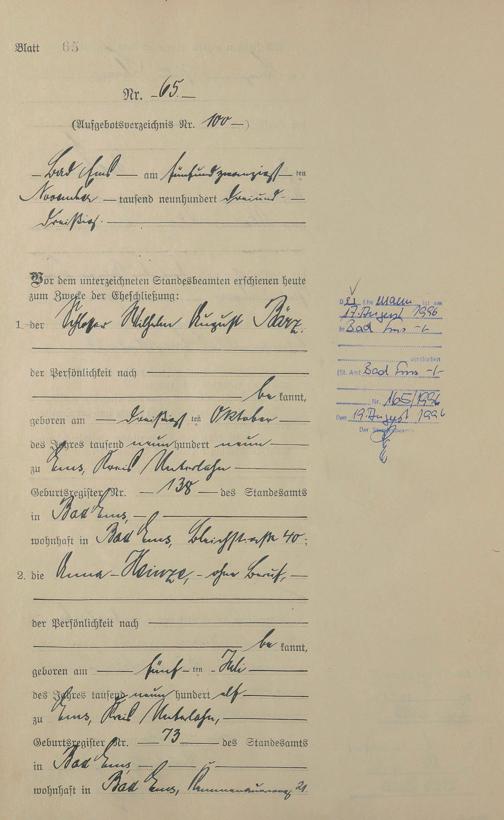 Blatt 65
Nr. 65
(Aufgebotsverzeichnis Nr. 100)
Bad Ems am fünfundzwanzigsten
November tausend neunhundert dreiund-
dreißig.
Vor dem unterzeichneten Standesbeamten erschienen heute
zum Zwecke der Eheschließung:
1. der Schlosser Wilhelm August Bärz,
der Persönlichkeit nach
bekannt,
geboren am dreißigsten Oktober
des Jahres tausend neunhundert neun
zu Ems, Kreis Unterlahn
Geburtsregister Nr. 138 des Standesamts
in Bad Ems,
wohnhaft in Bad Ems, Bleichstraße 40;
2. die Anna Heinze, ohne Beruf,
der Persönlichkeit nach
bekannt,
geboren am fünften Juli
des Jahres tausend neunhundert elf
zu Ems, Kreis Unterlahn,
Geburtsregister Nr. 73 des Standesamts
in Bad Ems
wohnhaft in Bad Ems, 21
Der Ehemann ist am
17. August 1996
in Bad Ems -/-
verstorben
(St. Amt Bad Ems -/-
Nr. 165/1996
Den 19. August 1996
Der Standesbeamte